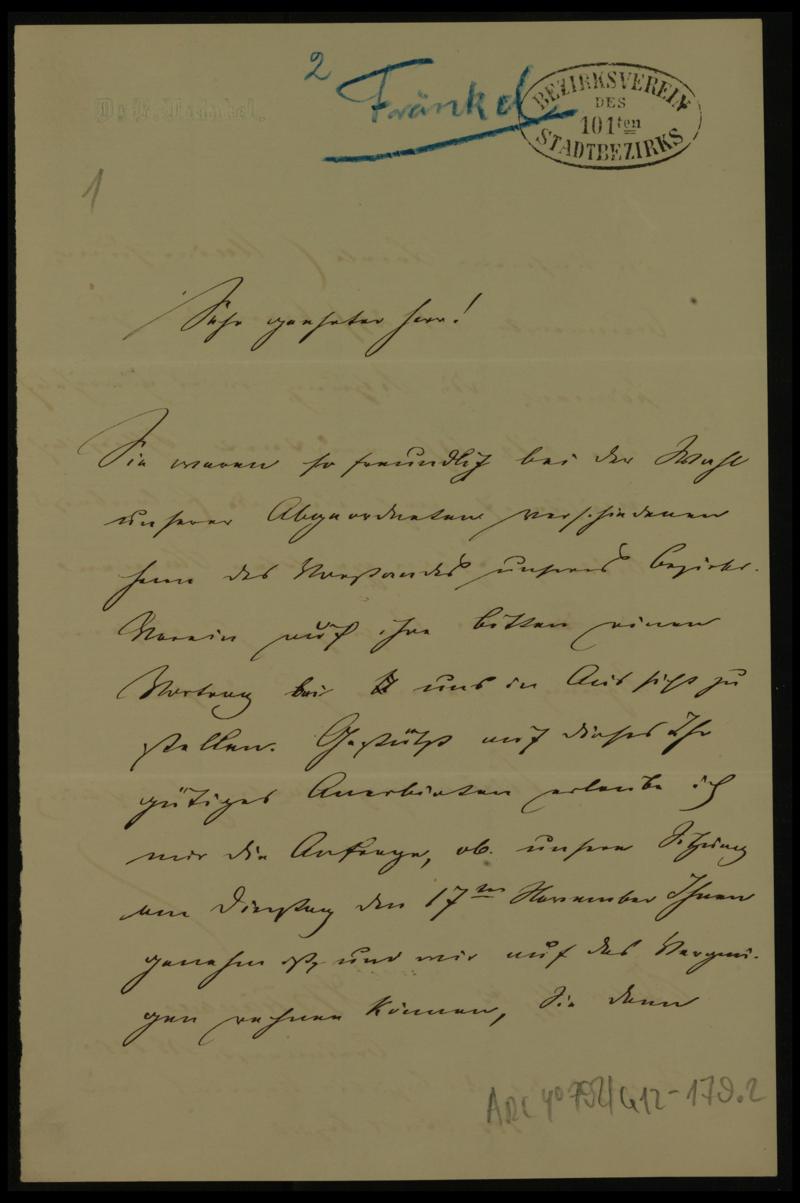 2
Fränkel
BEZIRKSVEREIN
DES
101ten
STADTBEZIRKS
1
Sehr geehrter Herr!
Sie waren so freundlich bei der Wahl
unserer Abgeordneten verschiedenen
Herrn des Vorstandes unseres Bezirks-
Verein auf ihre Bitten einen
Vortrag bei uns in Aussicht zu
stellen. Gestützt auf dieses Ihr
gütiges Anerbieten erlaube ich
mir die Anfrage, ob unsere Sitzung
am Dienstag den 17ten November Ihnen
genehm ist, und wir auf das Vergnü-
gen rechnen können, Sie dann